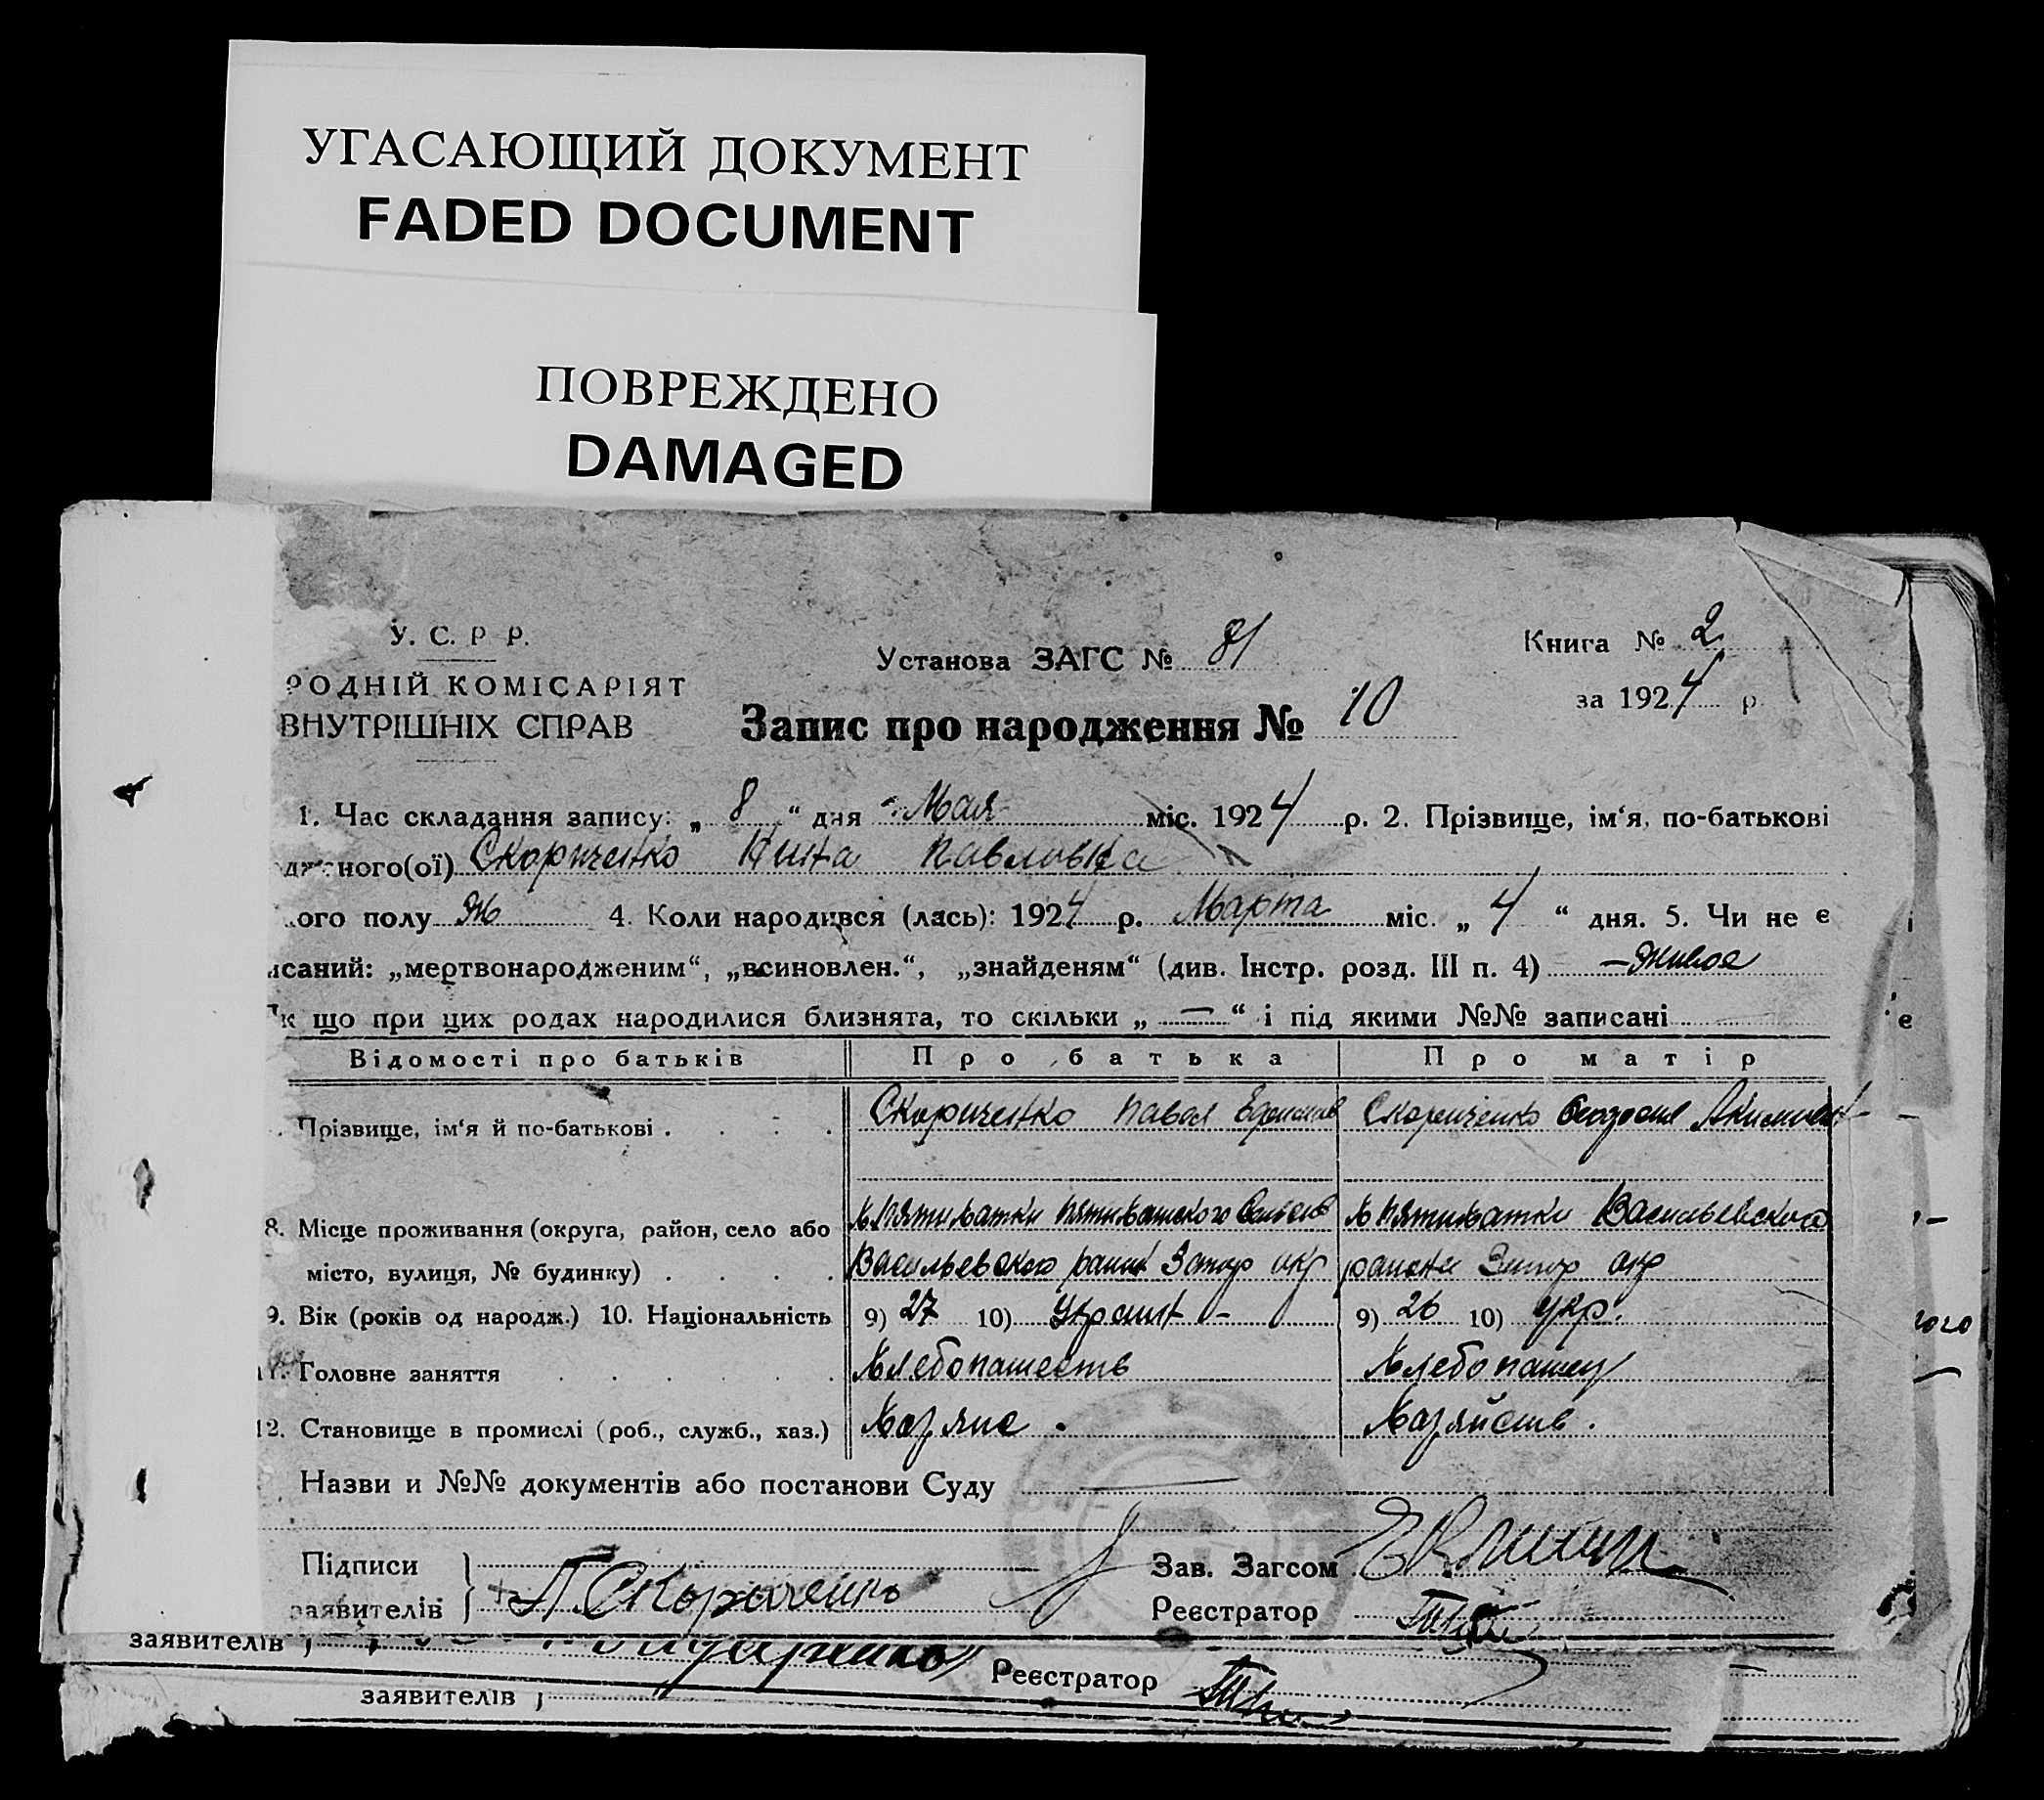 УГАСАЮЩИЙ ДОКУМЕНТ
FADED DOCUMENT
ПОВРЕЖДЕНО
DAMAGED
У. С. Р Р.
РОДНІЙ КОМІСАРІЯТ
ВНУТРІШНІХ СПРАВ
Установа ЗАГС № 81
Книга № 2
за 1924 р.
Запис про народження № 10
1. Час складання запису: „ 8 “ дня Мая міс. 1924 р. 2. Прізвище, ім‘я, по-батькові
ного(ої) Скориченко Нина Павловна
ого полу Ж 4. Коли народився (лась): 1924 р. Марта міс. „ 4 “ дня. 5. Чи не є
исаний: „мертвонародженим“, „всиновлен.“, „знайденям“ (див. Інстр. розд. III п. 4) — Живое
к що при цих родах народилися близнята, то скільки „ — “ і під якими №№ записані
Відомості про батьків Про батька Про матір
Прізвище, ім‘я й по-батькові . Скориченко Павел Скориченко
8. Місце проживання (округа, район, село або х Пятихатки Пятихатского х Пятихатки Васильевского
місто, вулиця, № будинку) . Васильевского Запор окр района Запор окр
9. Вік (років од народж.) 10. Національність 9) 27 10) Украин - 9) 26 10) укр.
11. Головне заняття Хлебопашеств Хлебопашец
12. Становище в промислі (роб., служб., хаз.) Хозяис . Хозяйств .
Назви и №№ документів або постанови Суду —
Підписи
заявителів } + П. Скориченко
Зав. Загсом
Реєстратор
заявителів
Реєстратор
заявителів